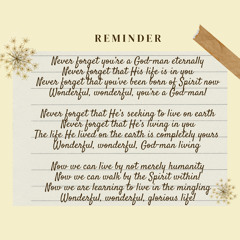 REMINDER
Never forget you're a God-man eternally
Never forget that His life is in you
Never forget that you've been born of Spirit now
Wonderful, wonderful, you're a God-man!
Never forget that He's seeking to live on earth
Never forget that He's living in you
The life He lived on the earth is completely yours
Wonderful, wonderful, God-man living
Now we can live by not merely humanity
Now we can walk by the Spirit within!
Now we are learning to live in the mingling
Wonderful, wonderful, glorious life!